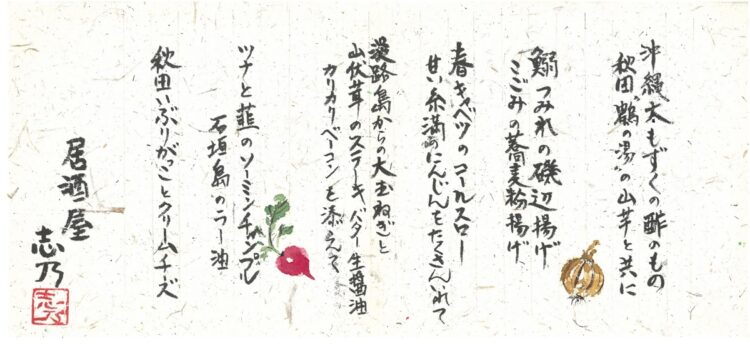 沖縄太もずくの酢のもの
秋田"鶴の湯"の山芋と共に
鰯つみれの磯辺揚げ
こごみの蕎麦粉揚げ
春キャベツのコールスロー
甘い糸満のにんじんをたくさんいれて
淡路島からの大玉ねぎと
山伏茸のステーキ、バター生醤油
カリカリベーコンを添えて
ツナと韮のソーミンチャンプル
石垣島のラー油
秋田いぶりがっことクリームチーズ
居酒屋
志乃
志乃